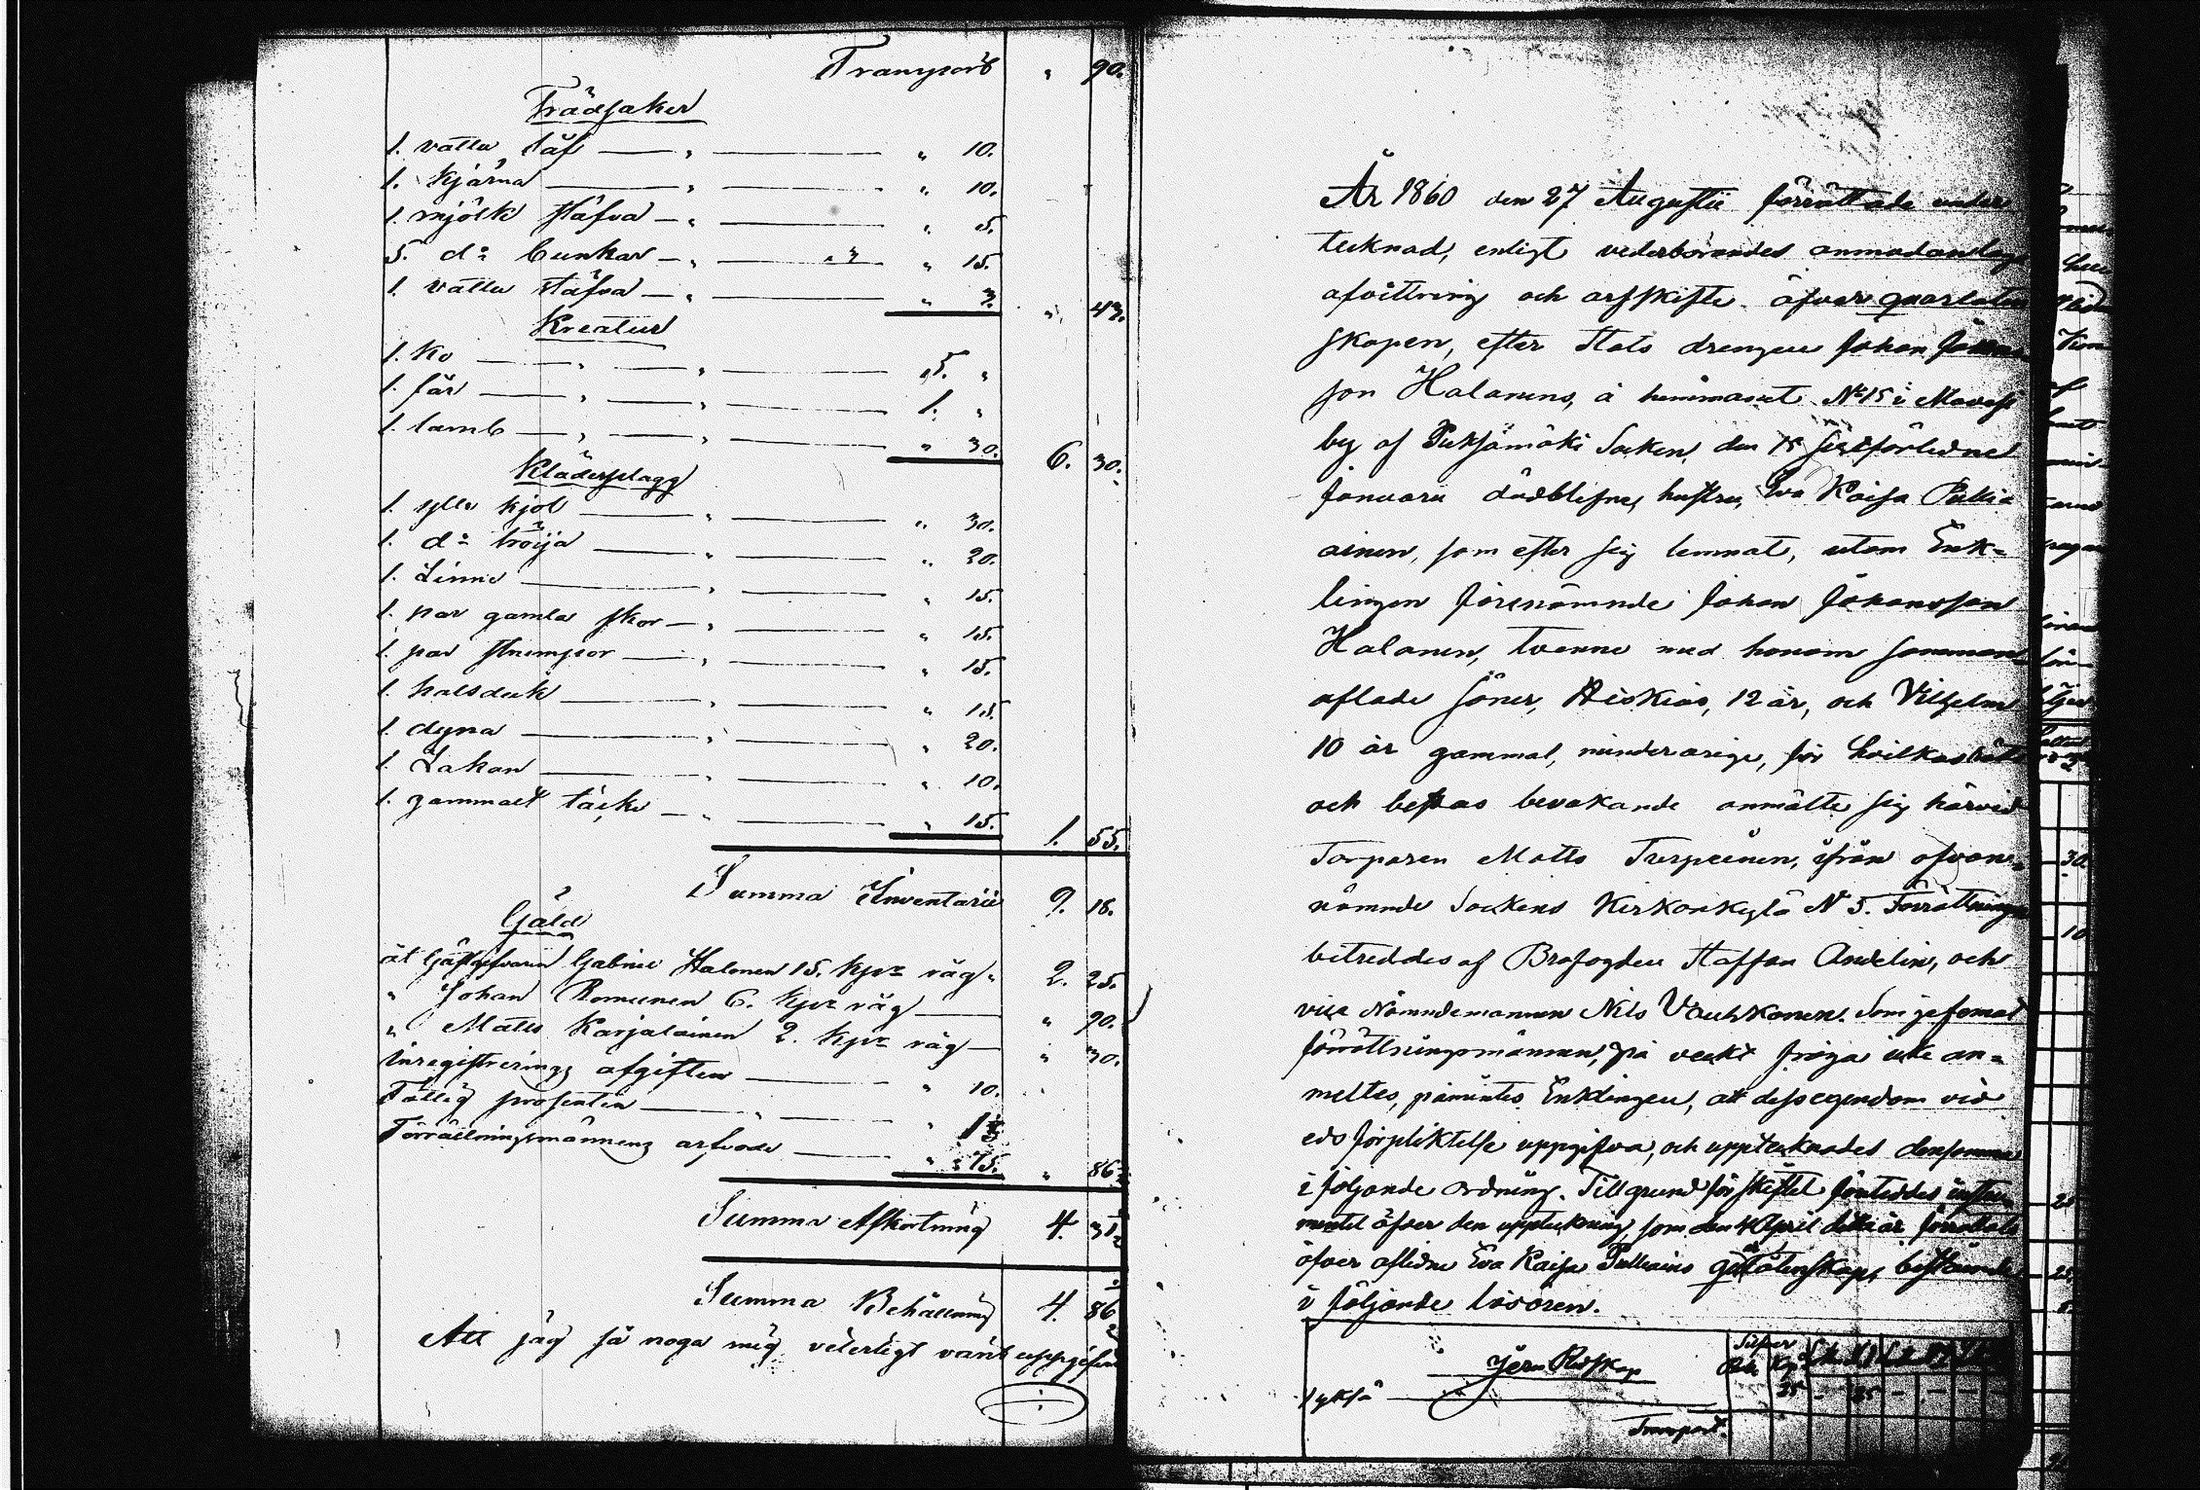 Transport " 90.
Trädsaker
1. vattu såf " 10.
1. kjärna " 10.
1. mjölk stäfva " 5.
5. d:o bunkar " 15.
1. vattu stäfva " 3. " 43.
Kreatur
1. ko 5. "
1. får 1. "
1. lamb " 30. 6. 30.
Klädesplagg
1. ylle kjol " 30.
1. d:o tröija " 20.
1. Linne " 15.
1. par gamla skor " 15.
1. par strumpor " 15.
1. halsduk " 15.
1. dyna " 20.
1. Lakan " 10.
1. gammalt täcke " 15. 1. 55.
Summa Inventarii 9. 18.
Gäld
åt Gästgifvaren Gabriel Halonen 15. kpr råg 2. 25.
" Johan Romunen 6. kpr råg " 90.
" Matts Karjalainen 2. kpr råg " 30.
Inregistrerings afgiften " 10.
Fattig prosenten " 1
Förrättningsmännens arfvode " 75. " 86
Summa Afkortning 4. 31
Summa Behållning 4. 86
Att jag så noga mig veterligt varit uppgifvit
År 1860 den 27 Augustii förrättade under
tecknad, enligt vederbörandes anmodan laga
afvittring och arfskifte öfver quarlåten
skapen, efter Stats drengen Johan Johans
son Halonens, å hemmanet N:o 15 i
by af Pieksämäki Socken, den 15 sistförledne
Januarii dödblefne hustru, Eva Kaisa Pulli
ainen, som efter sig lemnat, utom Enk=
lingen förenämnde Johan Johansson
Halonen, tvenne med honom samman
aflade Söner, Hiskias, 12 år, och Vilhelm
10 år gammal, minderårige, för hvilkas rätt
och bestas bevakande anmälte sig härvid
Torparen Matts Turpeinen, ifrån ofvan=
nämnde Sockens Kirkonkylä N 5. Förrättningen
bitreddes af Brofogden Staffan Andelin, och
vice Nämndemannen Nils Vauhkonen. Som jäf emot
förrättningsmännen, på veckt fråga icke an=
meltes, påmintes Enklingen, att dess egendom vid
eds förpliktelse uppgifva, och upptecknades densamma
i följande ordning. Till grund för skiftet företeddes instru
mentet öfver den uppteckning, som den 4 April detta år förrättats
öfver aflidne Eva Kaisa Pulliains qvarlåtenskap, bestående
i följande lösören.
Jern Redskap Silfver Rub. Kop.
1 yksä 25 – 25 –
Transport.